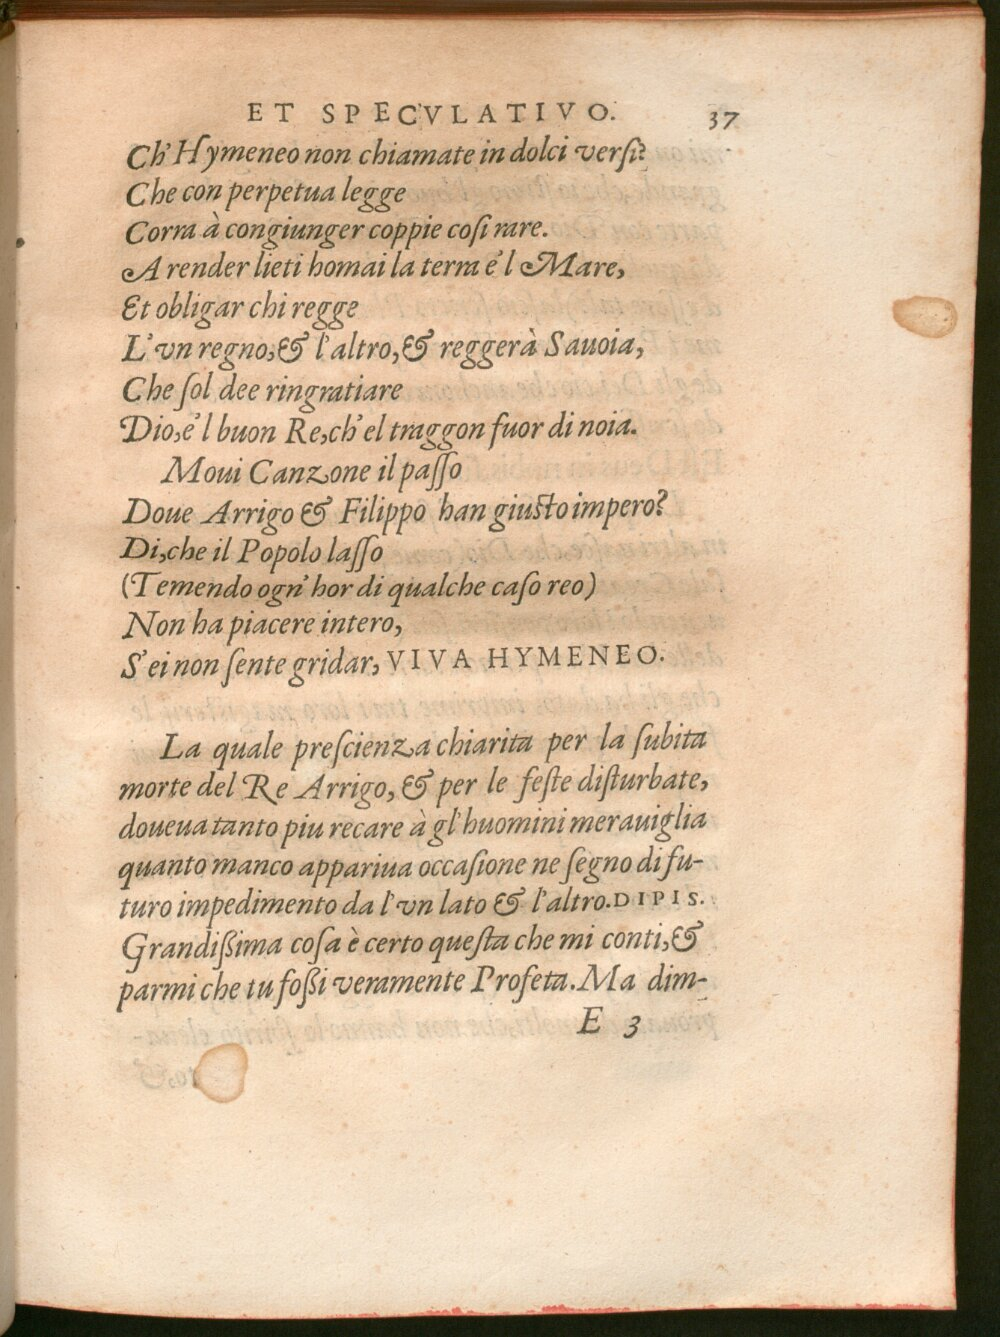 ET SPECVLATIVO. 37
Ch' Hymeneo non chiamate in dolci versi?
Che con perpetua legge
Corra à congiunger coppie cosi rare.
A render lieti homai la terra e'l Mare,
Et obligar chi regge
L'vn regno, & l'altro, & reggerà Sauoia,
Che sol dee ringratiare
Dio, e'l buon Re, ch'el traggon fuor di noia.
Moui Canzone il passo
Doue Arrigo & Filippo han giusto impero?
Di, che il Popolo lasso
(Temendo ogn'hor di qualche caso reo)
Non ha piacere intero,
S'ei non sente gridar, VIVA HYMENEO.
La quale prescienza chiarita per la subita
morte del Re Arrigo, & per le feste disturbate,
doueua tanto piu recare à gl'huomini merauiglia
quanto manco appariua occasione ne segno di fu-
turo impedimento da l'vn lato & l'altro. DIPIS.
Grandißima cosa è certo questa che mi conti, &
parmi che tu foßi veramente Profeta. Ma dim-
E 3